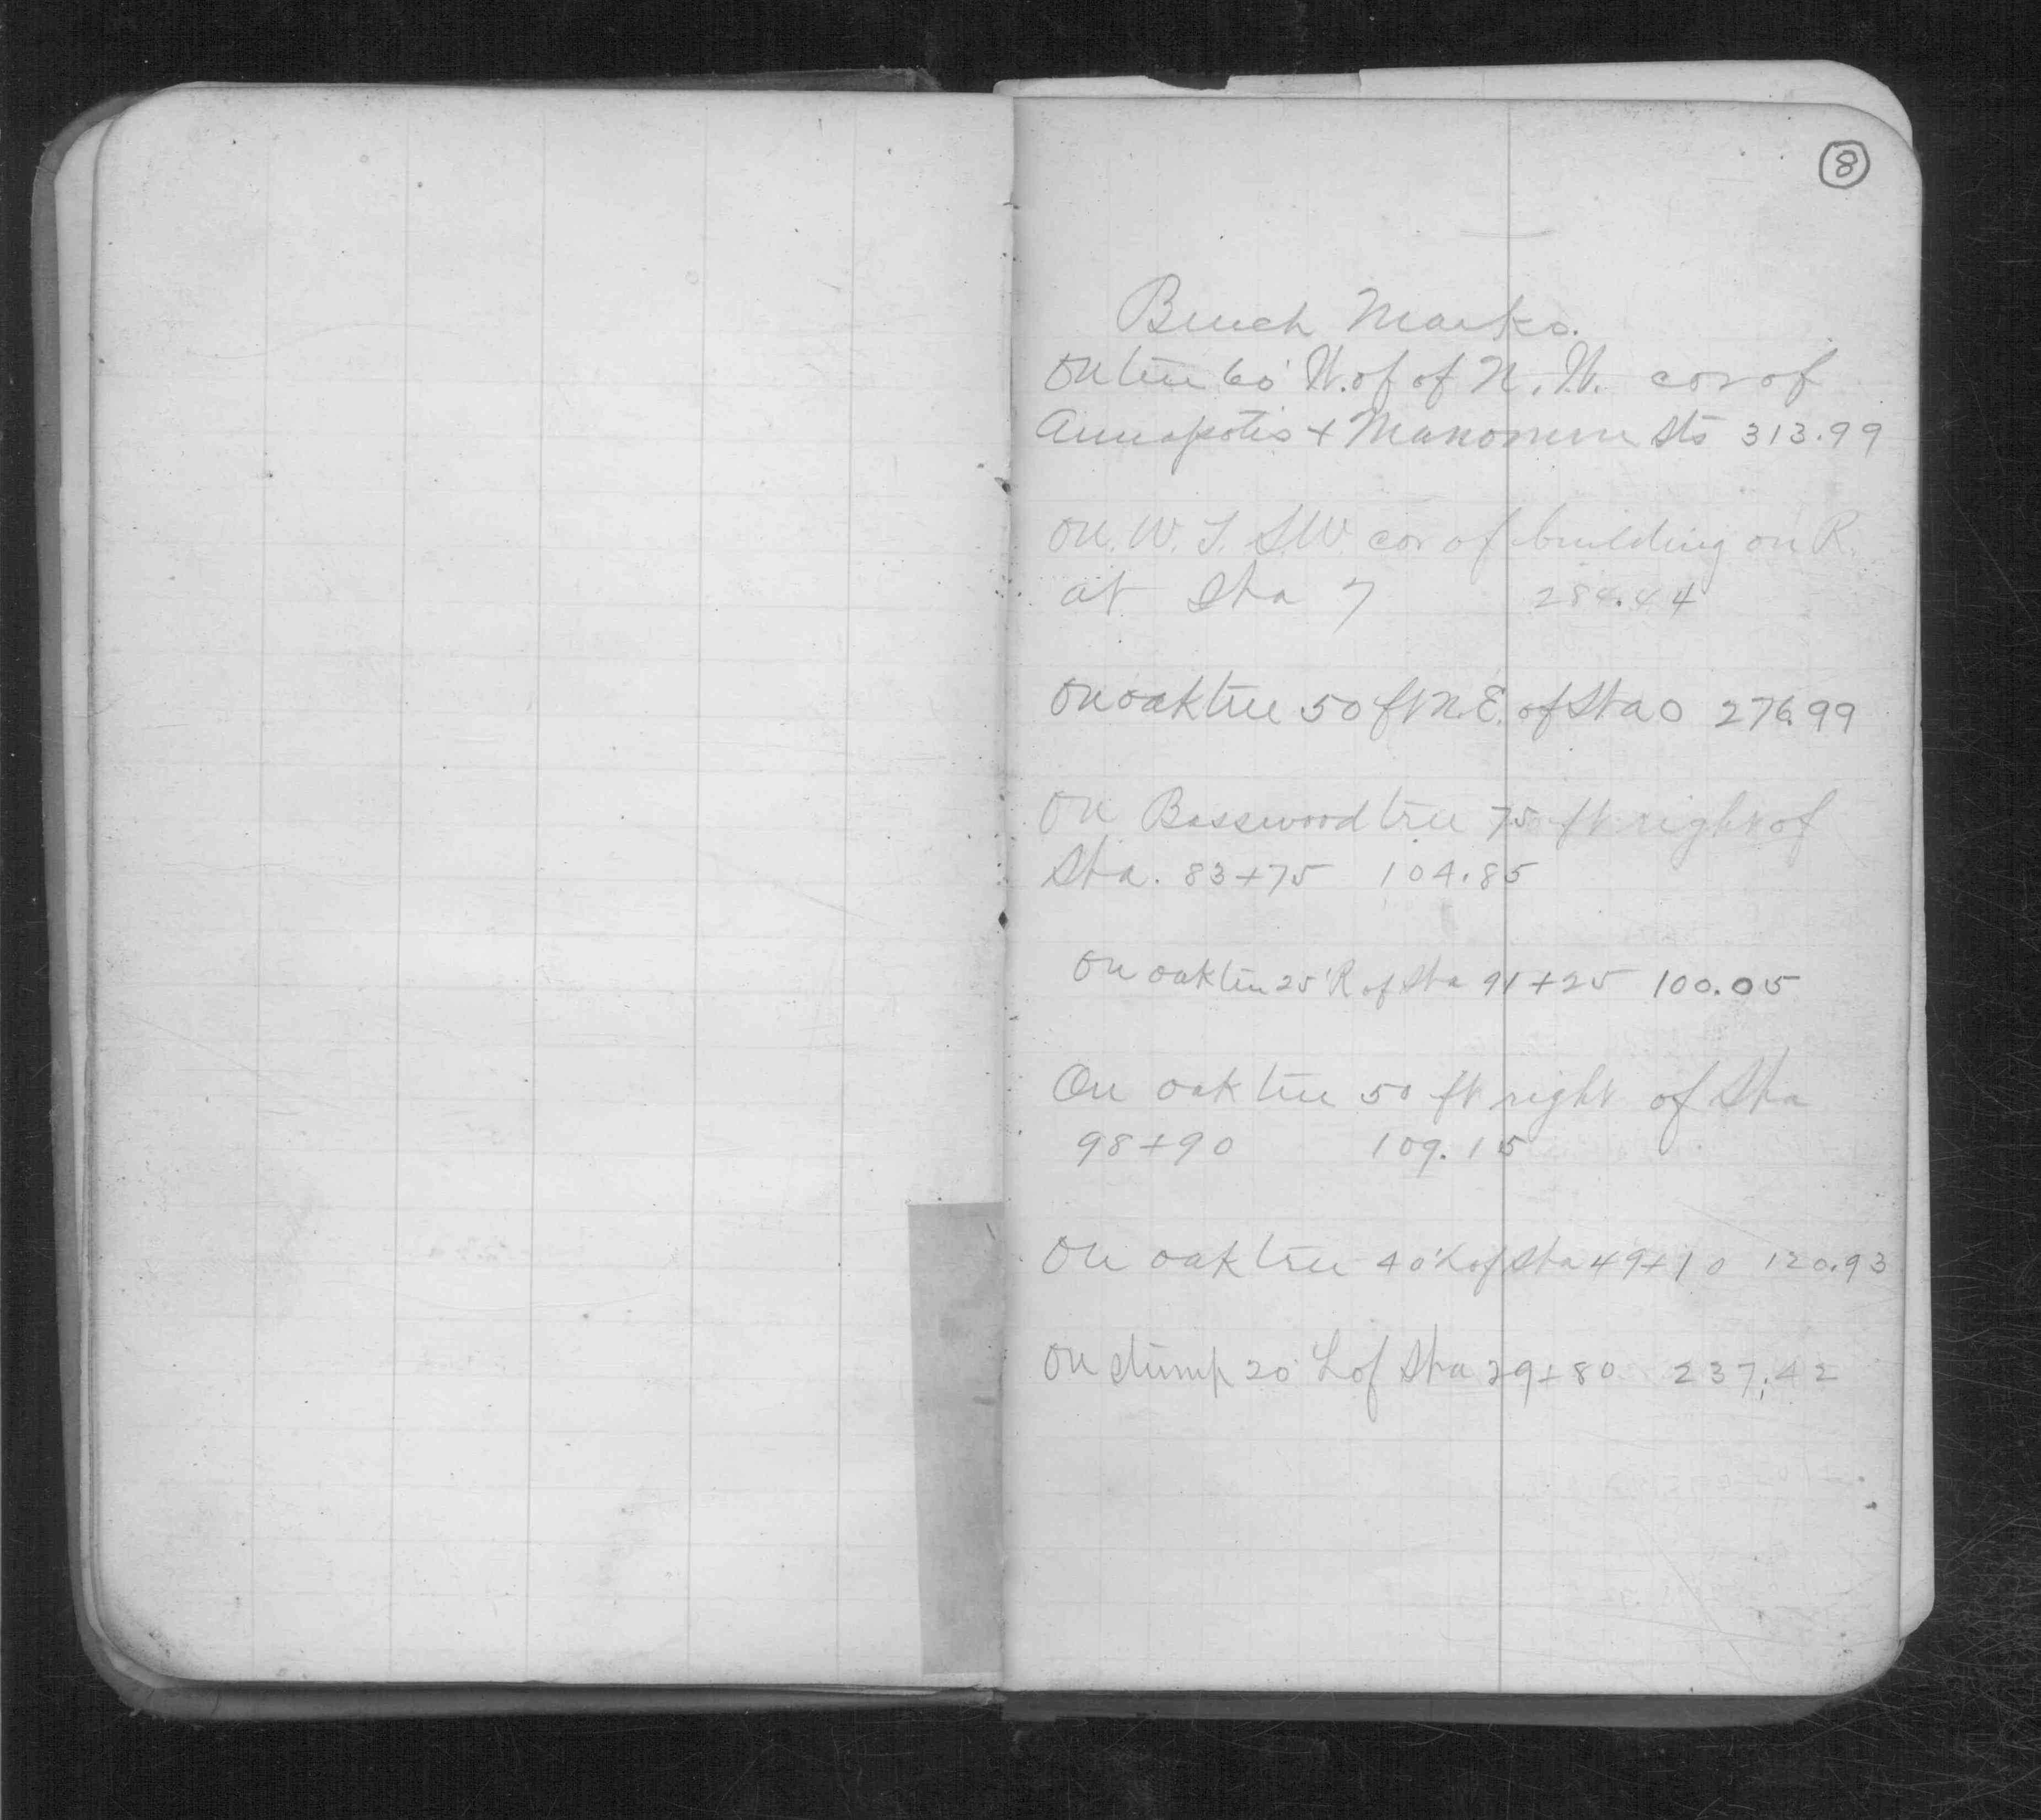 8
Bench Marks.
On tree 60' W. of of N. W. cor of
Annapolis + Manomin Sts 313.99
On W. T. S.W. cor of building on R.
at Sta 7 284.44
On oak tree 50 ft N.E. of Sta 0 276.99
On Basswood tree 75 ft right of
Sta. 83+75 104.85
On oak tree 25' R of Sta 91+25 100.05
On oak tree 50 ft right of Sta
98+90 109.15
On oak tree 40' L of Sta 49+10 120.93
On stump 20' L of Sta 29+80 237.42